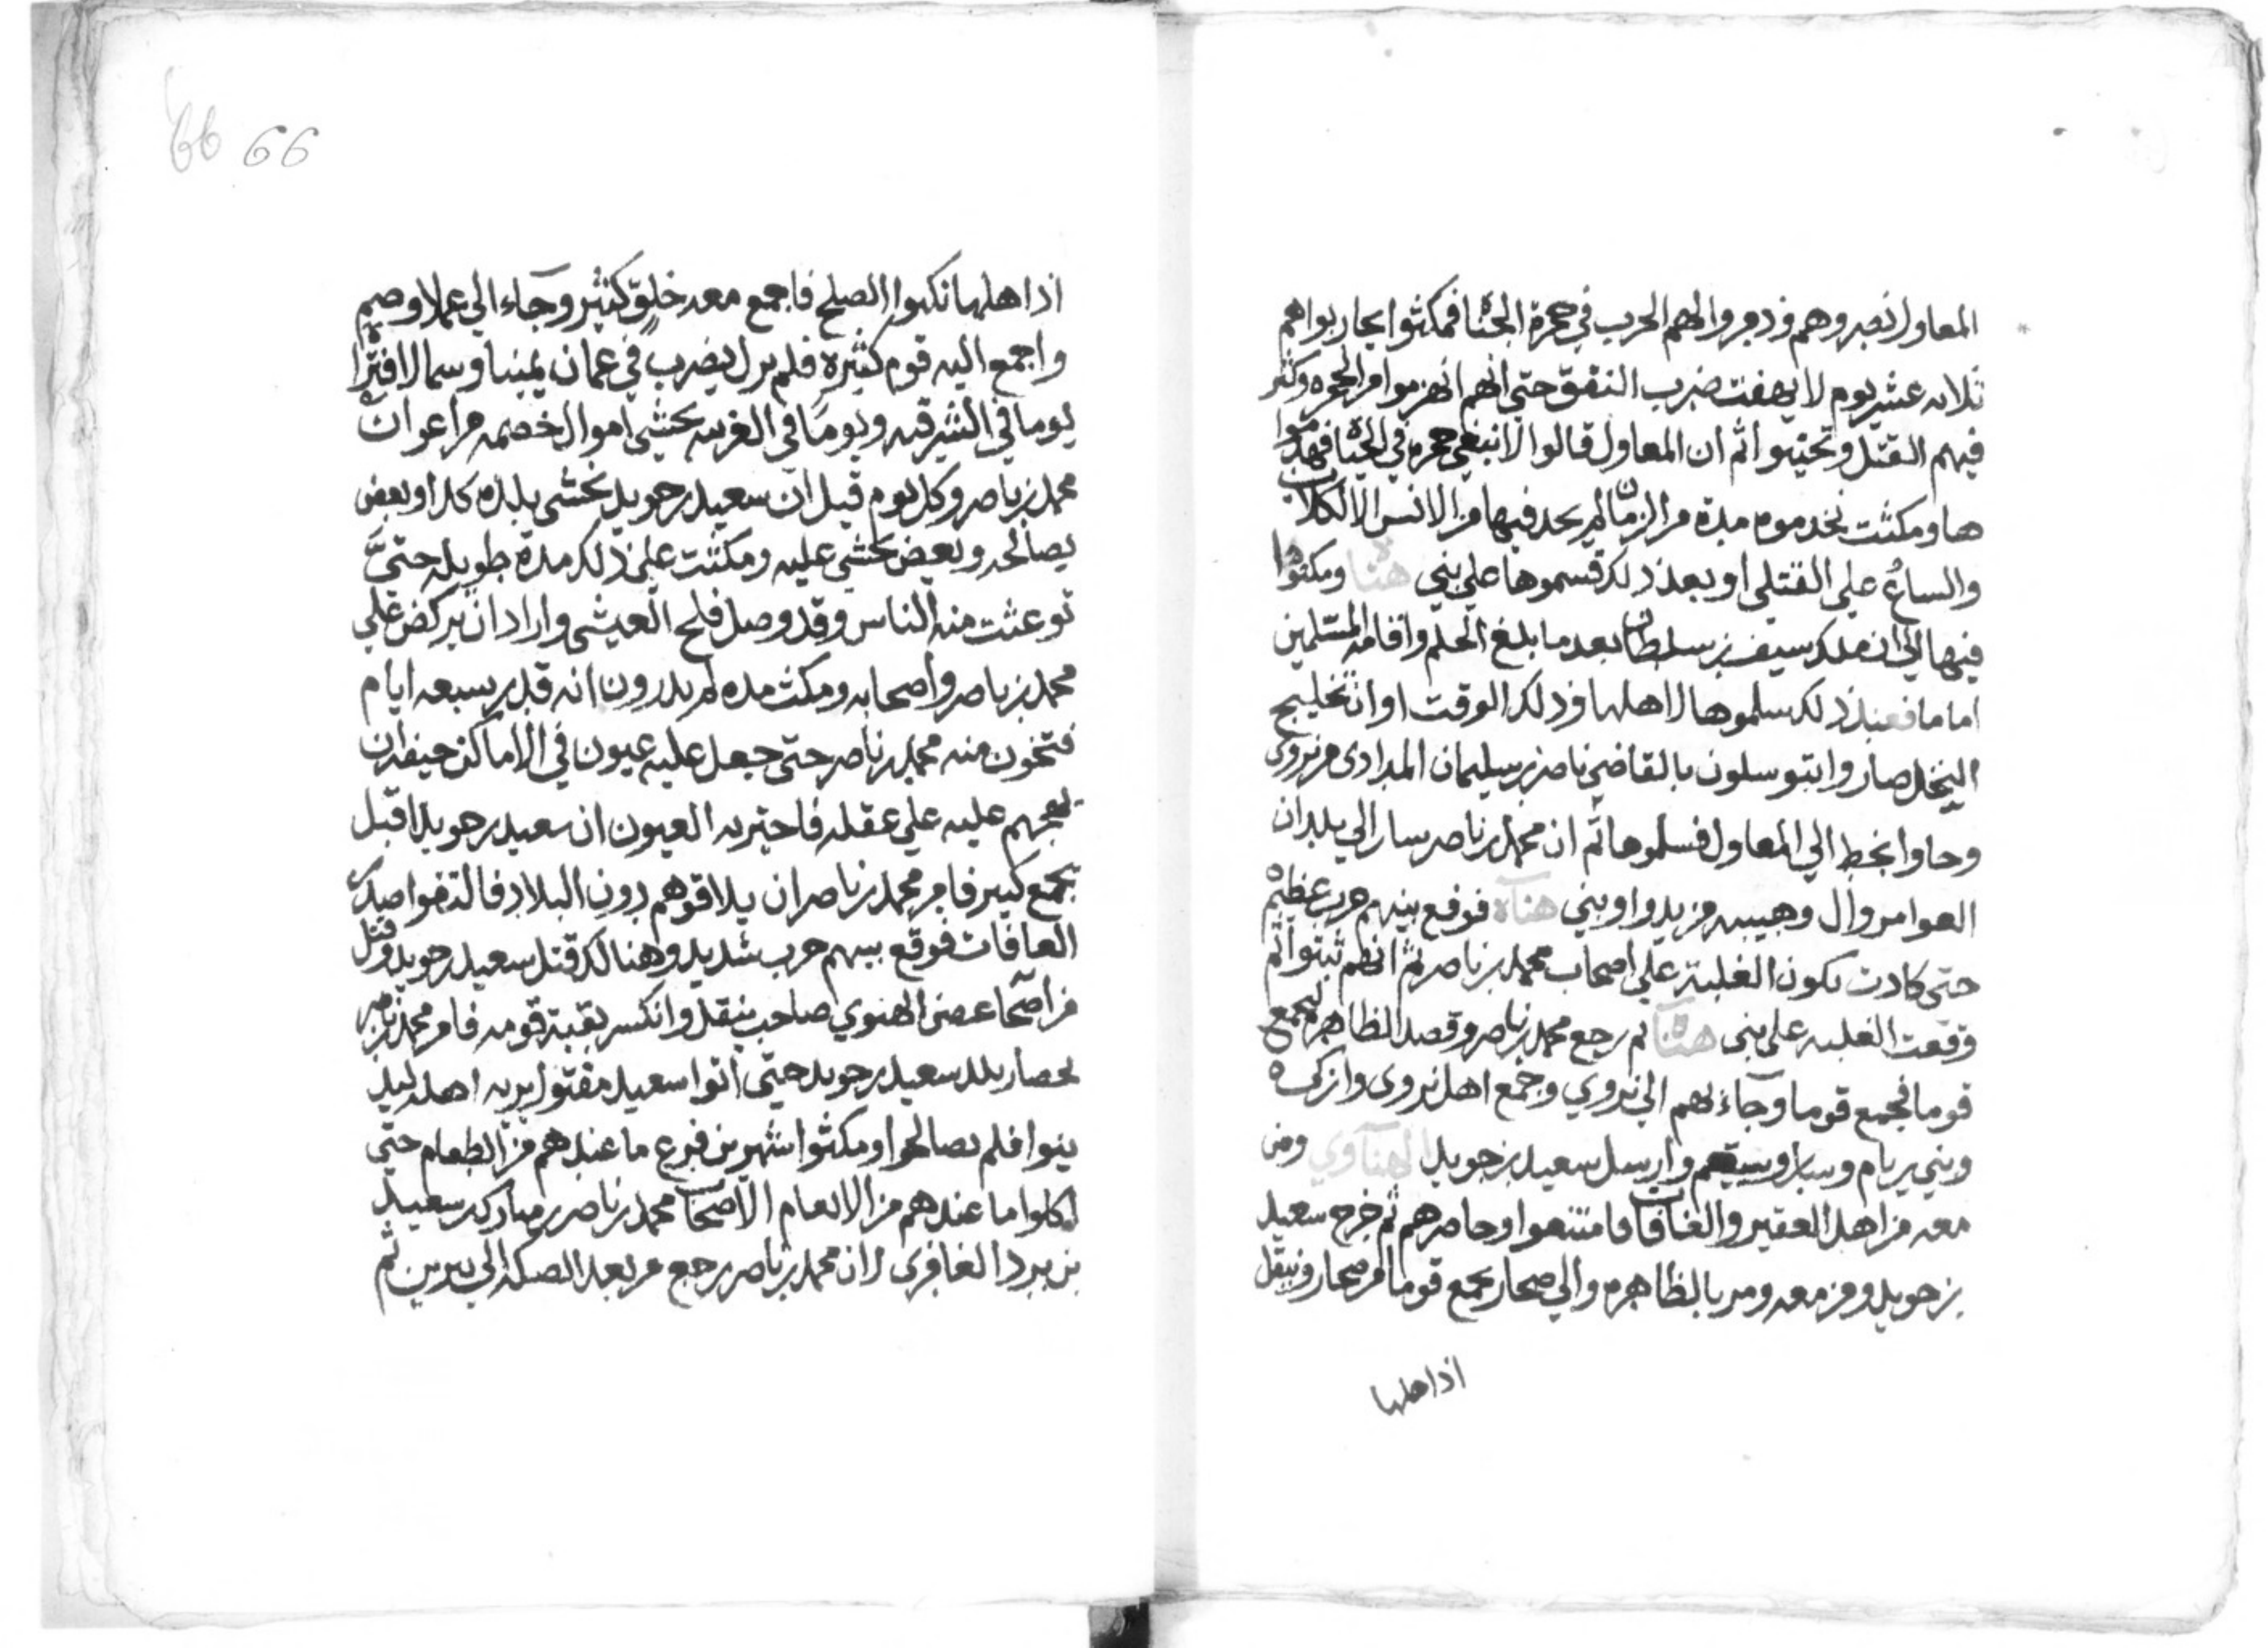 المعاول نصروهم ودمروا لهم الحرب في حجرة الجناه فمكثوا يحاربوا هم
ثلاثه عشر يوم لا يهفت ضرب التفق حتى انهم انهزموا من الحجره وكثر
فيهم القتل وتحيبوا ثم ان المعاول قالوا لا نبغي حجره في الجناه فهدموا
ها ومكثت مخدمومه مدة من الزمان لم يحد فيها من الانس الا الكلاب
والساع على القتلى او بعد ذلك قسموها على بني هناه ومكثوا
فيها الى ان ملك سيف بن سلطان بعد ما بلغ الحلم واقامه المسلمين
اماما فعند ذلك سلموها لاهلها وذلك الوقت اوان تخليج
النخل صاروا يتوسلون بالقاضي ناصر بن سليمان المدادى من نزوى
وجاوا بخط الي المعاول فسلموها ثم ان محمد بن ناصر سار الي بلدان
العوامر وال وهيبه من يدوا وبني هناه فوقع بينهم حرب عظيم
حتى كادت تكون الغلبة على اصحاب محمد بن ناصر ثم انهم ثبتوا ثم
وقعت الغلبه على بنى هناه ثم رجع محمد بن ناصر وقصد الظاهره ليجمع
قوما فجمع قوما وجاء بهم الى نزوي وجمع اهل نزوى وازكي
وبني ريام وسار وسيقم وارسل سعيد بن جويد الهناوي ومن
معه من اهل العقير والغافات فامتنعوا وحاصرهم ثم خرج سعيد
بن جويد ومن معه ومر بالظاهره والي صحار يجمع قوما من صحار وينقل
اذا هلها
66 66
اذا هلها نكبوا الصلح فاجمع معه خلق كثير وجاء الي عملا وصم
واجمع اليه قوم كثيرة فلم يزل يضرب في عمان يمينا وسمالا افترا
يوما في الشرقيه ويوما في الغربيه يحشى اموال خصمه من اعوان
محمد بن ناصر وكل يوم قيل ان سعيد بن جويد يحشى بلده كدا وبعض
يصالحه وبعض يحشى عليه ومكثت على ذلك مدة طويله حتى
توعثت منه الناس وقد وصل فلج العيشى واراد ان يركض على
محمد بن ناصر واصحابه ومكث مده لم يدرون انه قدر سبعه ايام
فتخون منه محمد بن ناصر حتى جعل عليه عيون في الاماكن حيفه ان
يهجهم عليه على عقله فاحتبر به العيون ان سعيد بن جويد اقبل
بجمع كبير فامر محمد بن ناصر ان يلاقوهم دون البلاد فالتقوا صيدك
الغافات فوقع بينهم حرب شديد وهنالك قتل سعيد بن جويد وقتل
من اصحا غصن الهنوي صاحب ينقل وانكسر بقية قومه فامر محمد بن ناصر
بحصار بلد سعيد بن جويد حتى اتوا سعيد مقتول يريه اهله ليد
ينوا فلم يصالحوا ومكثوا شهرين فرغ ما عندهم من الطعام حتى
اكلوا ما عندهم من الانعام الاصحاب محمد بن ناصر بن مبارك بن سعيد
بن بردا لغافرى ران محمد بن ناصر رجع من بعد الصكه الي يبرين ثم